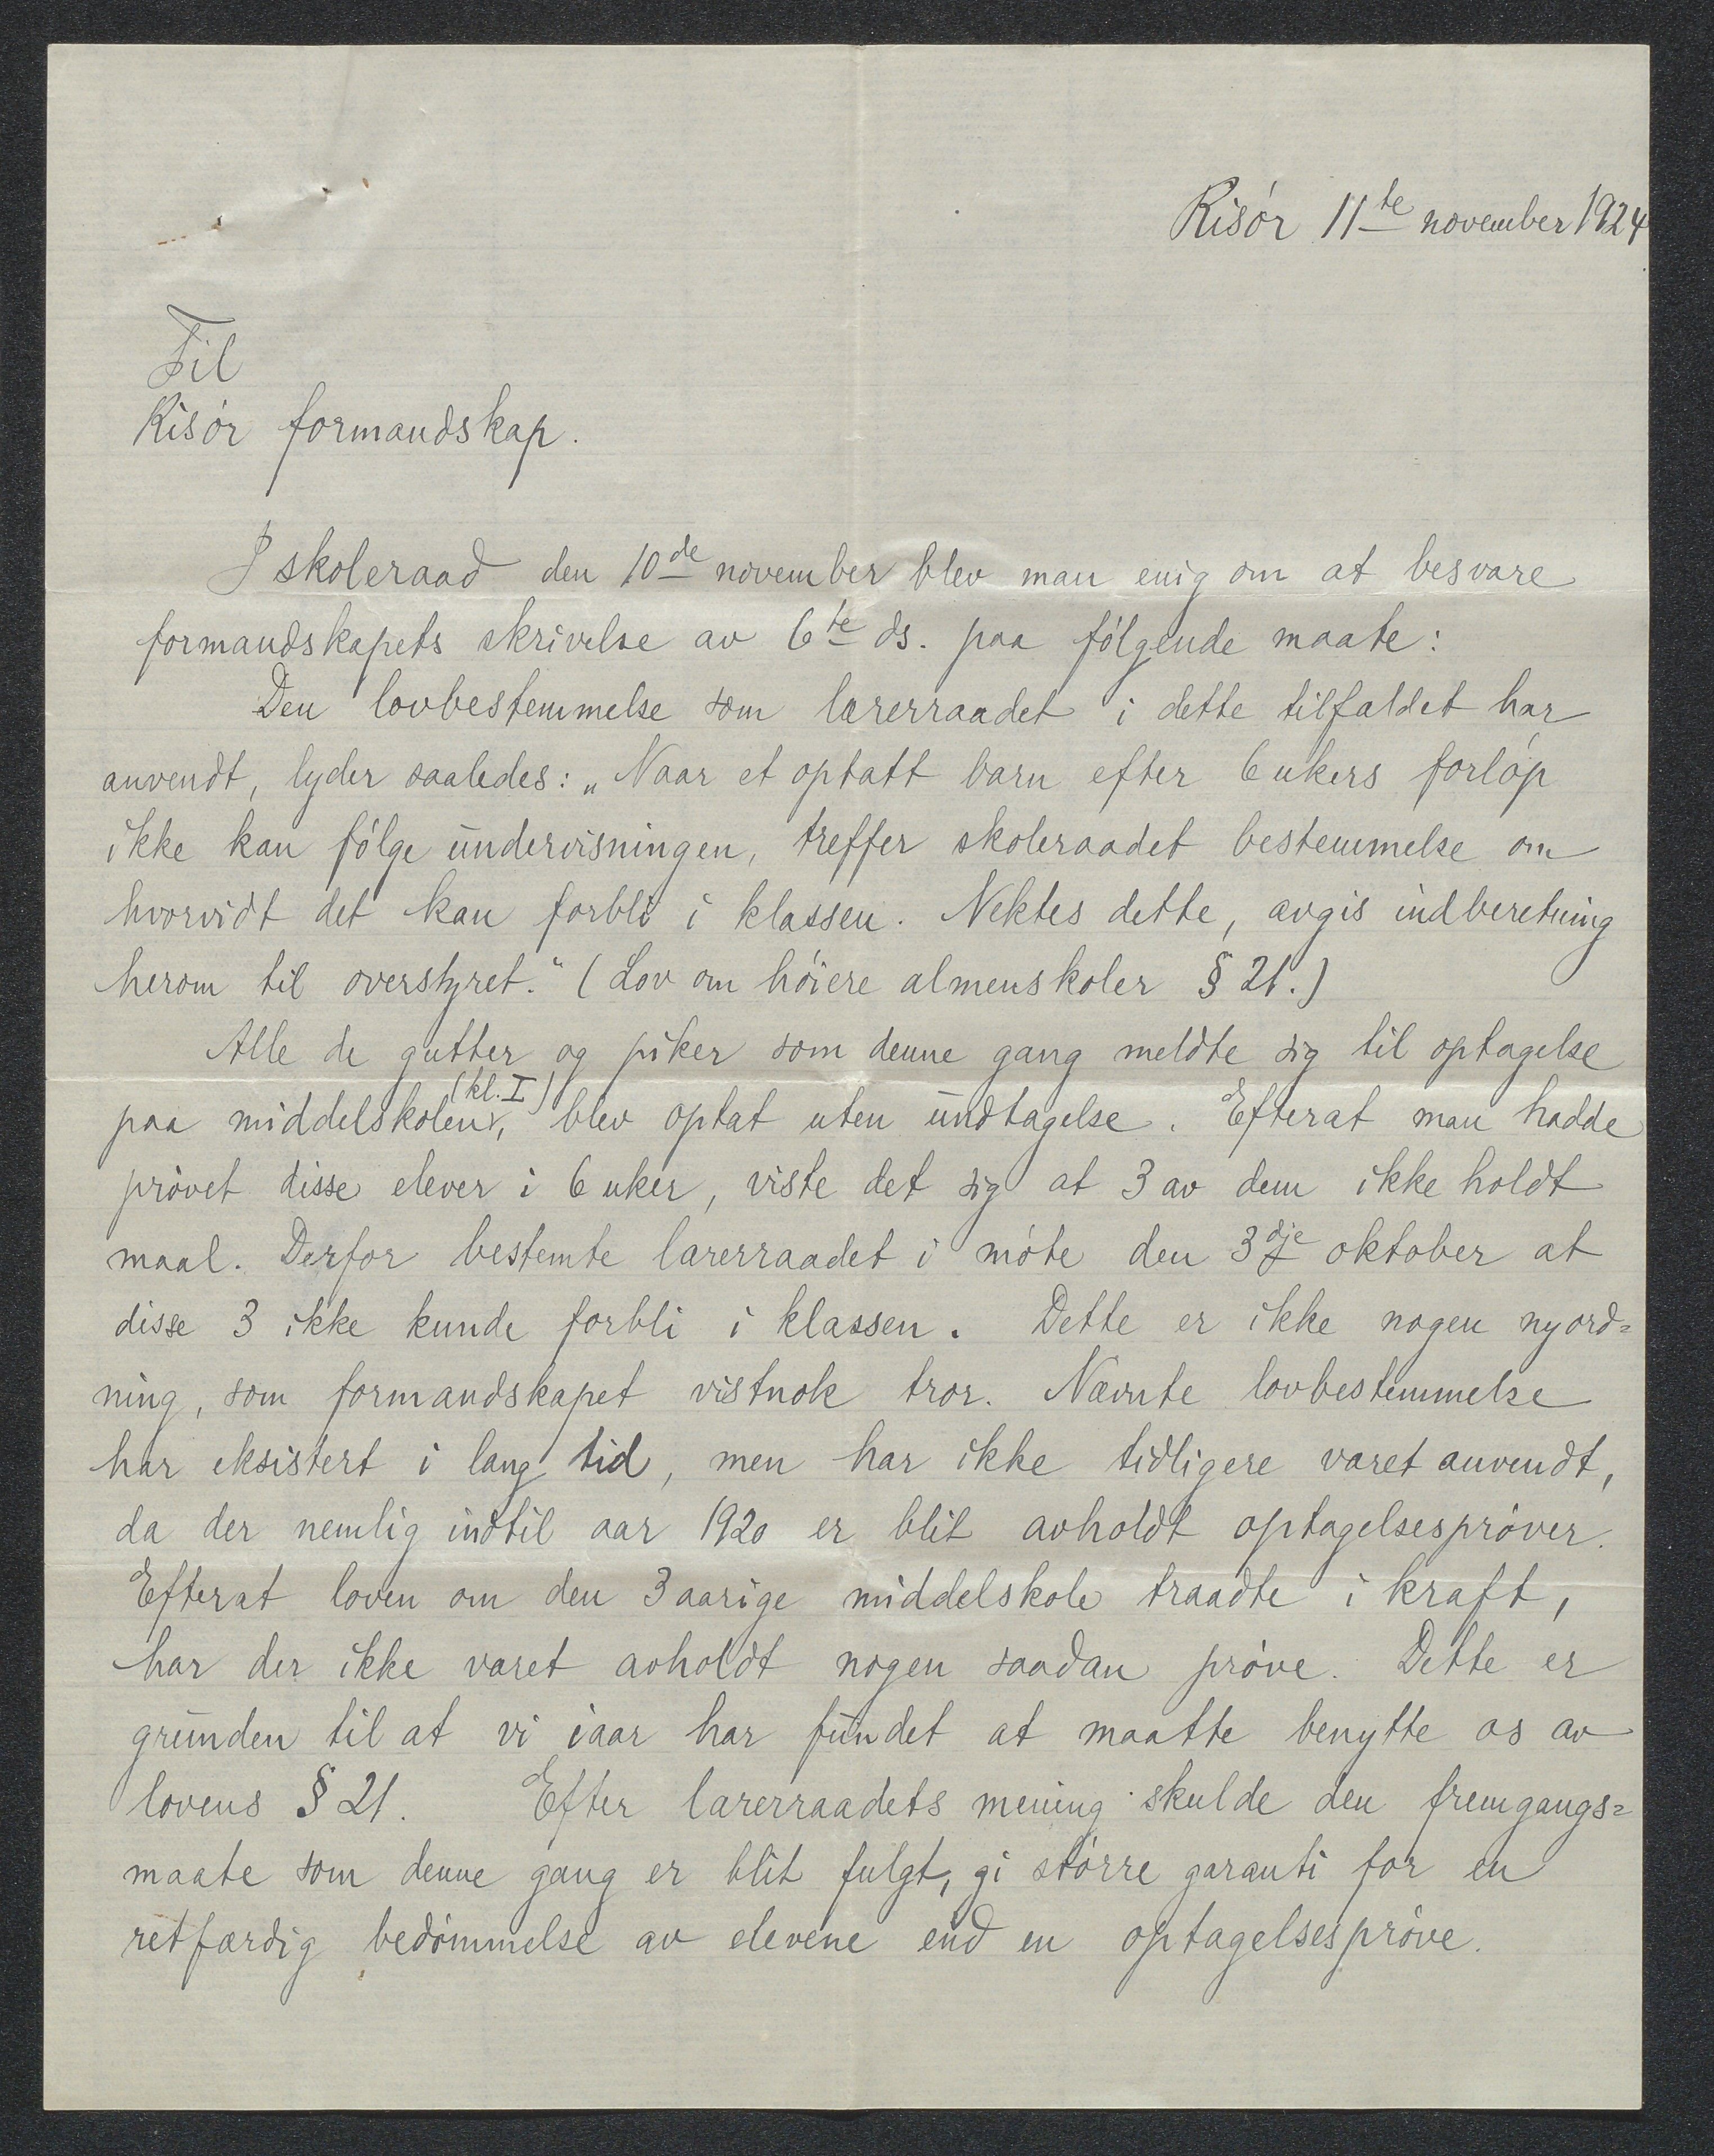 Risör 11te november 1924
Til
Risör formandskap.
I skoleraad den 10de november blev man enig om at besvare
formandskapets skrivelse av 6te ds. paa fölgende maate:
Den lovbestemmelse som lærerraadet i dette tilfældet har
anvendt, lyder saaledes: „Naar et optatt barn efter 6 ukers forlöp
ikke kan fölge undervisningen, treffer skoleraadet bestemmelse om
hvorvidt det kan forbli i klassen. Nektes dette, avgis indberetning
herom til overstyret.“ (Lov om höiere almenskoler § 21.)
Alle de gutter og piker som denne gang meldte sig til optagelse
paa middelskolen (kl. I), blev optat uten undtagelse. Efterat man hadde
prövet disse elever i 6 uker, viste det sig at 3 av dem ikke holdt
maal. Derfor bestemte lærerraadet i möte den 3dje oktober at
disse 3 ikke kunde forbli i klassen. Dette er ikke nogen nyord=
ning, som formandskapet vistnok tror. Nævnte lovbestemmelse
har eksistert i lang tid, men har ikke tidligere været anvendt,
da der nemlig indtil aar 1920 er blit avholdt optagelsespröver.
Efterat loven om den 3 aarige middelskole traadte i kraft,
har der ikke været avholdt nogen saadan pröve. Dette er
grunden til at vi iaar har fundet at maatte benytte os av
lovens § 21. Efter lærerraadets mening skulde den fremgangs=
maate som denne gang er blit fulgt, gi större garanti for en
retfærdig bedömmelse av elevene end en optagelsespröve.